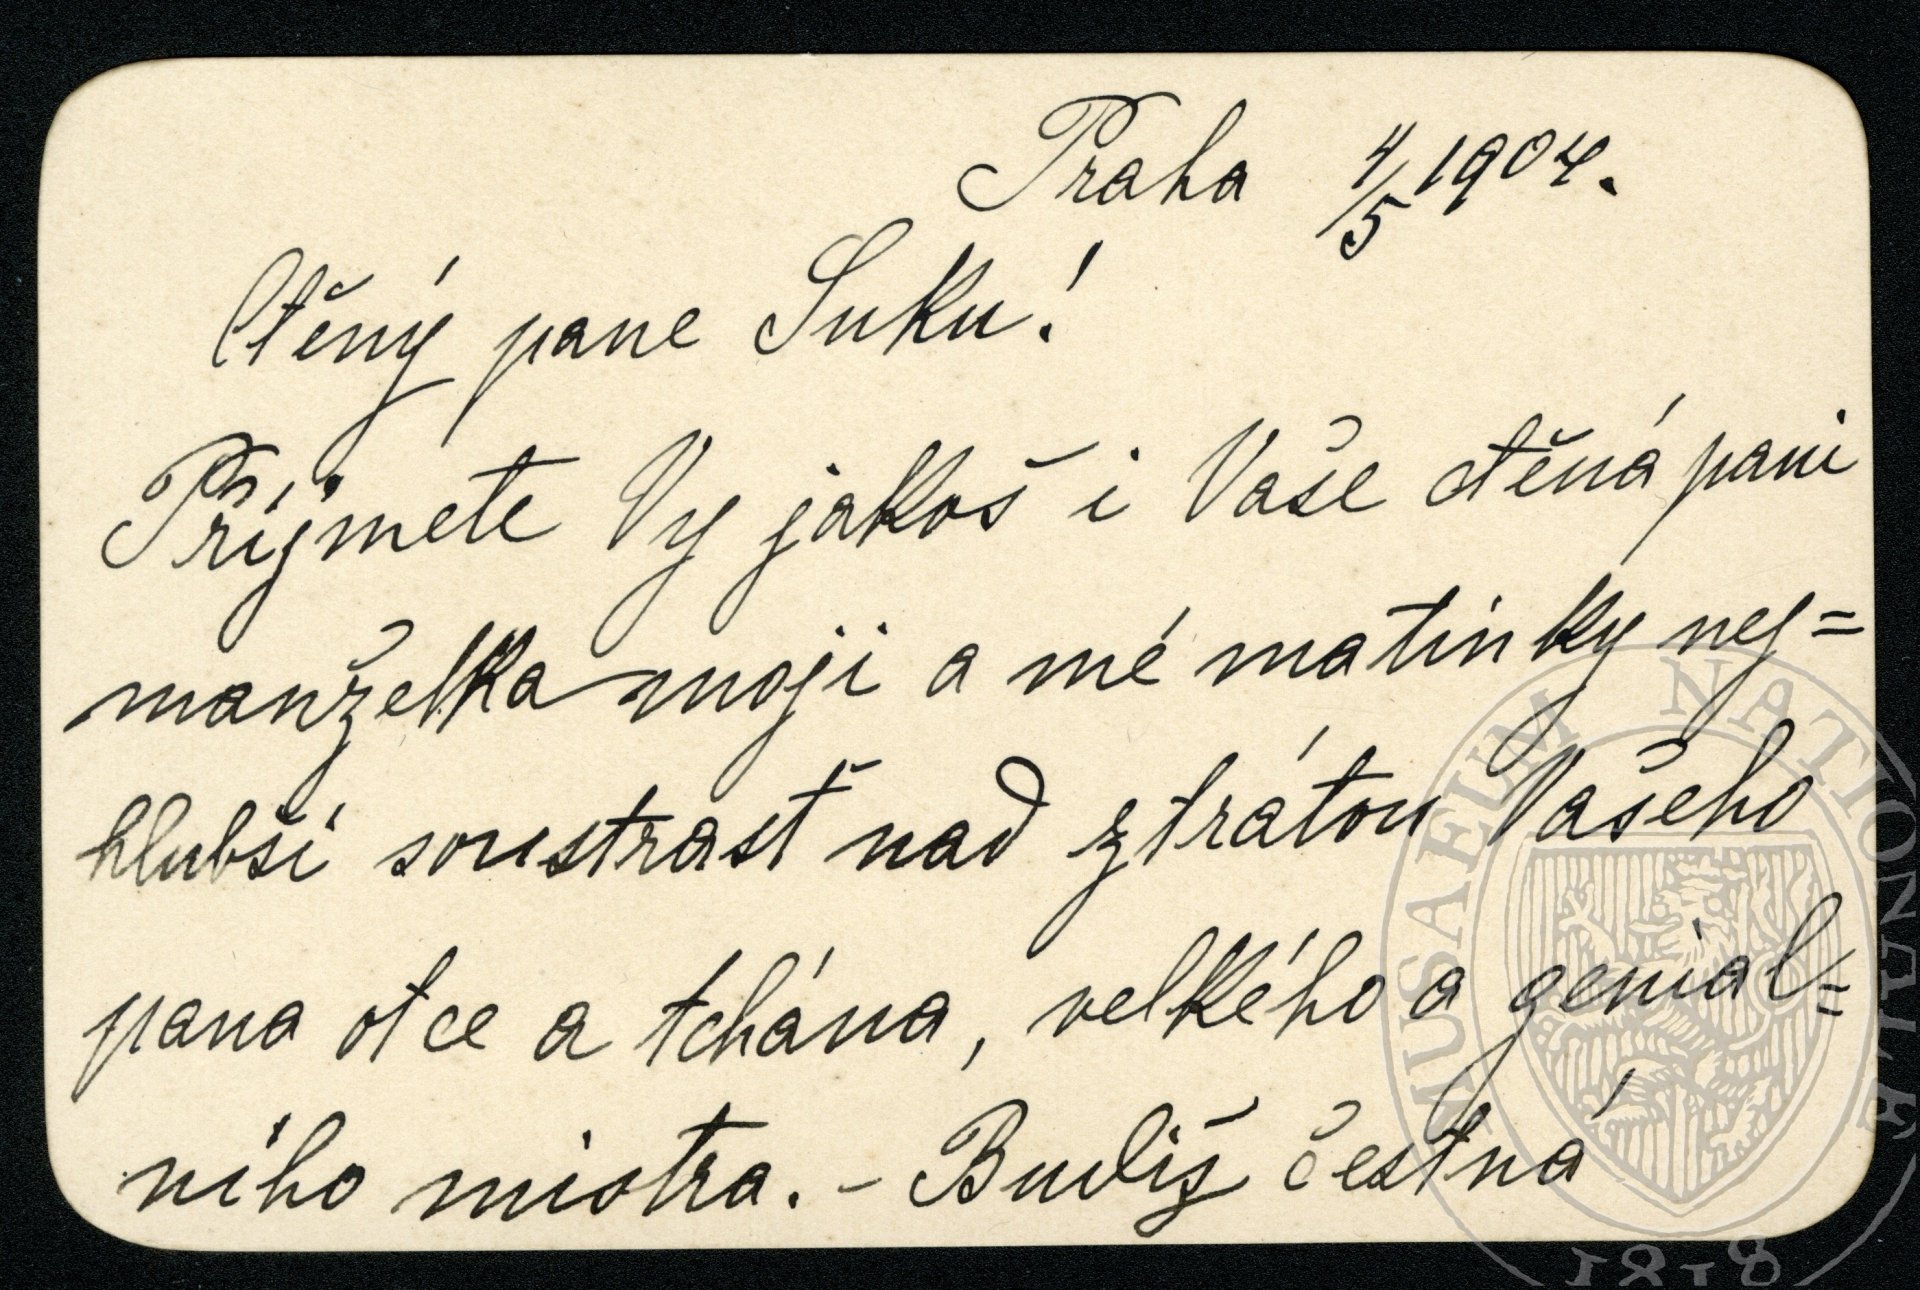 Praha 4/5 1904.
Ctěný pane Suku!
Přijmete Vy jakož i Vaše ctěná pani
manželka moji a mé matinky nej=
hlubší soustrast nad ztrátou Vašeho
pana otce a tchána, velkého a genial=
ního mistra. - Budiž čestná
MUSAEUM NATIONALE
1818